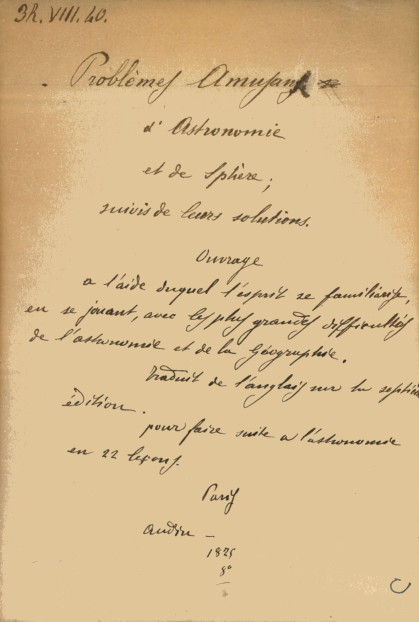 3R. VIII. 40.
Problèmes Amusans
d'Astronomie
et de Sphère;
suivis de leurs solutions.
Ouvrage
a l'aide duquel l'esprit se familiarise,
en se jouant, avec les plus grandes difficultés
de l'astronomie et de la Géographie.
traduit de l'anglais sur la septième
édition.
pour faire suite a l'astronomie
en 22 leçons.
Paris
Audin —
1825
8°